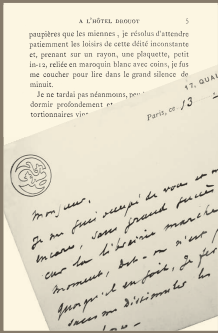 A L'HÔTEL DROUOT 5
paupières que les miennes, je résolus d'attendre
patiemment les loisirs de cette déité inconstante
et, prenant sur un rayon, une plaquette, petit
in-12, reliée en maroquin blanc avec coins, je fus
me coucher pour lire dans le grand silence de
minuit.
Je ne tardai pas néanmoins,
dormir profondément et
tortionnaires
17, QUAI
Paris, ce 13
Monsieur,
Je me suis occupé de vous et
encore, sans grand succès
car la librairie marche
moment, Dit-on n'est
quoiqu'il en soit, je
vous dissimuler les